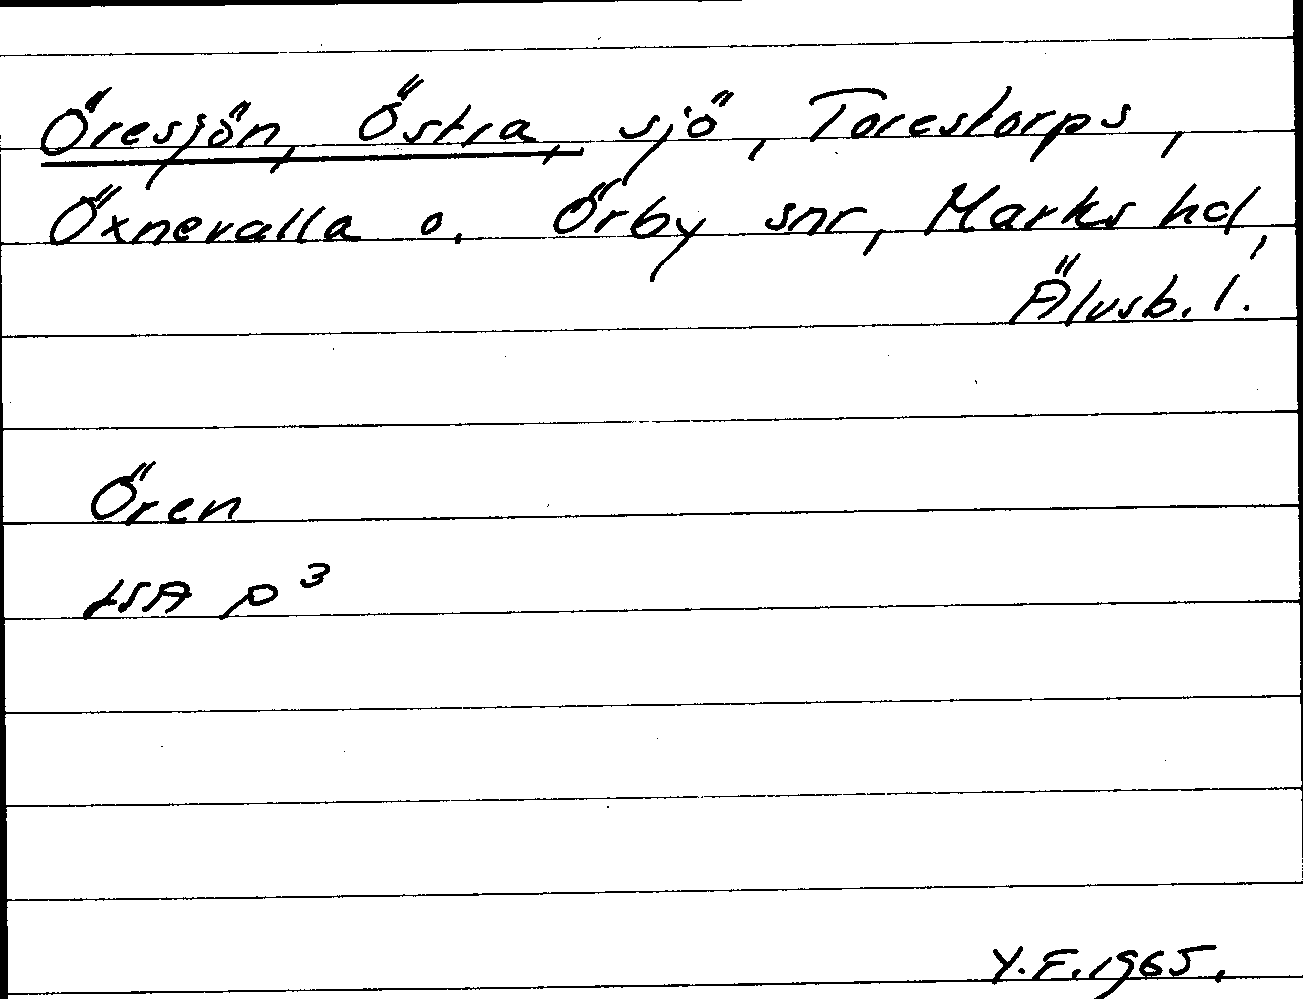 Öresjön, Östra, sjö, Torestorps,
Öxnevalla o. Örby snr, Marks hd,
Älvsb. l.
Ören
LSA p³
Y.F. 1965.